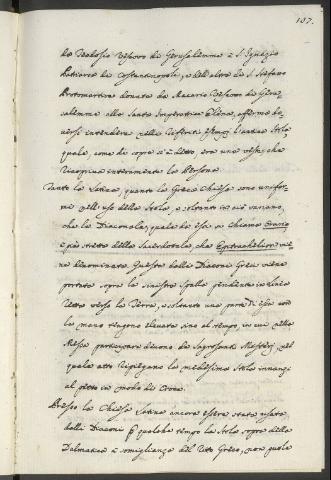 107.
da Teodosio Vescovo di Gerusalemme a S. Ignazio
Patriarca di Costantinopoli, e dell'altra di S. Stefano
Protomartire donata da Macario Vescovo di Geru-
salemme alla Santa Imperatrice Elena, afferma do-
versi intendere nelli l'antica Stola,
quale, come di sopra si è detto, era una veste, che
ricopriva interamente la Persona.
Tanto la Latina, quanto la Greca Chiesa sono unifor-
mi nell'uso della Stola, e soltanto in ciò variano,
che la Diaconale, quale da essi si chiama Orario
è più stretta della Sacerdotale, che Epitrachelion vie-
ne denominata. Questa dalli Diaconi Greci viene
portata sopra la sinistra spalla pendente in linea
retta verso la Terra, e soltanto una parte di essa con
la mano tengono elevata sino al tempo, in cui nella
Messa participare devono de Sagrosanti Misterj, nel
quale atto ripiegano la medesima Stola innanzi
al petto in modo di Croce.
Presso la Chiesa Latina ancora essere stata usata
dalli Diaconi p qualche tempo la Stola sopra della
Dalmatica a somiglianza del Rito Greco, non quale